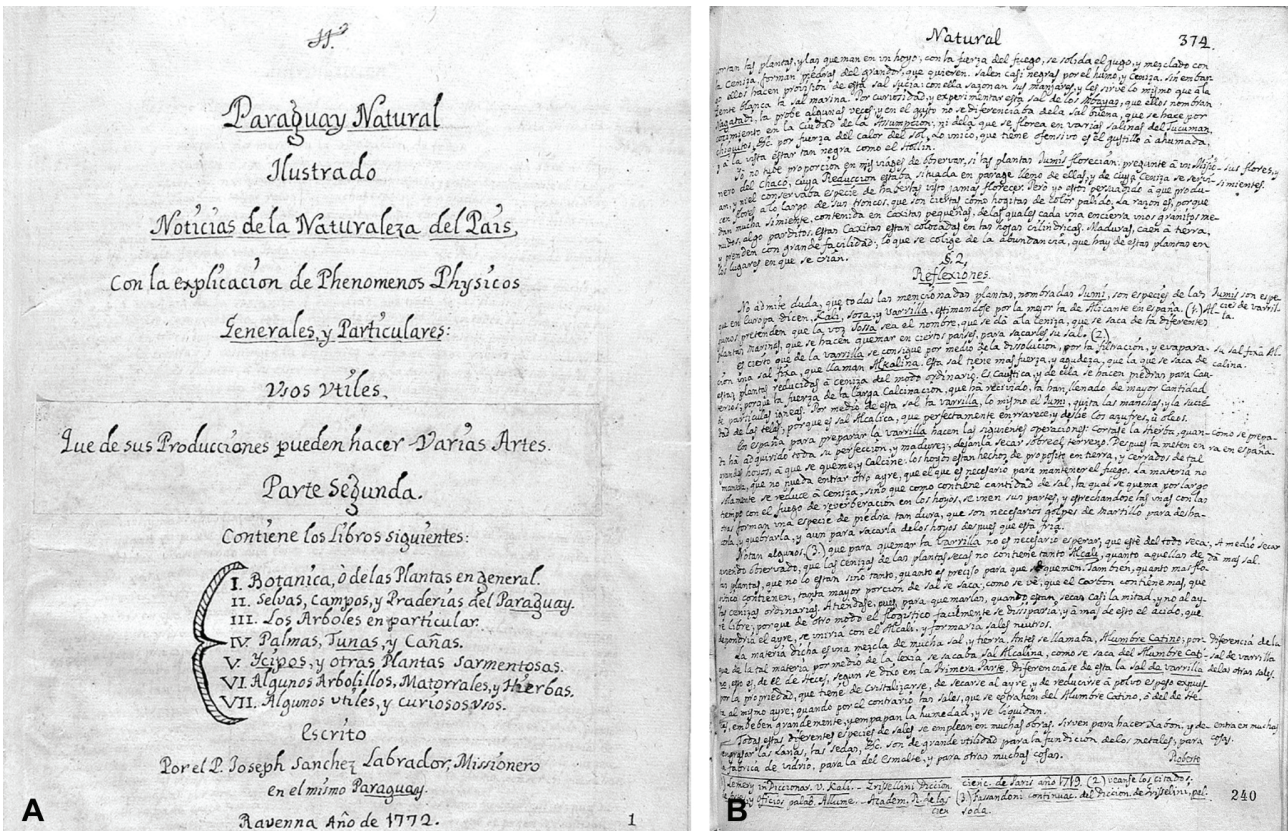 Paraguay Natural
Ilustrado
Noticias de la Naturaleza del Pais,
Con la explicacion de Phenomenos Physicos
Generales, y Particulares:
Vsos Vtiles,
Que de sus Producciones pueden hacer Varias Artes.
Parte Segunda.
Contiene los Libros siguientes:
I. Botanica, ò de las Plantas en general.
II. Selvas, Campos, y Praderias del Paraguay.
III. Los Arboles en particular.
IV. Palmas, Tunas, y Cañas.
V. Ycipos, y otras Plantas Sarmentosas.
VI. Algunos Arbolillos, Matorrales, y Hierbas.
VII. Algunos vtiles, y curiosos vsos.
Escrito
Por el P. Joseph Sanchez Labrador, Missionero
en el mismo Paraguay.
Ravenna Año de 1772.
1
A
Natural 374.
las plantas, y las queman en vn hoyo, con la fuerza del fuego, se solida el jugo, y mezclado con
la Ceniza, forman piedras del grandor, que quieren. Salen casi negras por el humo, y Ceniza. Sin embar-
ellos hacen provision de esta sal sucia: con ella sazonan sus manjares, y les sirve lo mismo que à la
gente blanca la sal marina. Por curiosidad, y experimentar esta sal de los Mbayas, que ellos nombran
la probe algunas veces, y en el gusto no se diferenciaba de la sal buena, que se hace por
en la Ciudad de la Assumpcion, ni de la que se florea en varias salinas del Tucuman,
Chiquitos, &c. por fuerza del calor del Sol. Lo vnico, que tiene ofensivo es el gustillo à ahumada,
y à la vista estar tan negra como el Hollin.
Yo no tube proporcion en mis viages de observar, si las plantas Jumis florecian: pregunte à vn Missio- sus flores, y
nero del Chaco, cuya Reduccion estaba situada en parage lleno de ellas, y de cuya Ceniza se servi- simientes.
an, y niel conservaba especie de haberlas visto jamas florecer. Pero yo estoi persuadido à que produ-
cen flores à lo largo de sus troncos, que son ciertas como hogitas de color palido. La razon es, porque
dan mucha simiente, contenida en Caxitas pequeñas, de las quales cada vna encierra vnos granitos me-
nudos, algo parditos. Estan Caxitas estan colocadas en las hojas cilindricas. Maduras, caen à tierra,
y prenden con grande facilidad, lo que se colige de la abundancia, que hai de estas plantas en
los lugares en que se crian.
§. 2.
Reflexiones.
No admite duda, que todas las mencionadas plantas, nombradas Jumi, son especies de las Jumis son espe-
que en Europa dicen, Kali, sosa, y varrilla, estimandose por la mejor la de Alicante en españa. (1.) Al- cies de varril-
gunos pretenden que la voz Sossa sea el nombre, que se dà à la Ceniza, que se saca de las diferentes la.
plantas marinas, que se hacen quemar en ciertos paises, para sacarles su Sal. (2.)
Es cierto que de la varrilla se consigue por medio de la dissolucion, por la filtracion, y evapara- su sal fixa Al-
cion vna sal fixa, que llaman Alxalina. Esta sal tiene mas fuerza, y agudeza, que la que se saca de calina.
estas plantas reducidas à ceniza del modo ordinario. Es Caustica, y de ella se hacen piedras para Cau-
terios; porque la fuerza de la larga Calcinacion, que ha recivido, la han llenado de mayor Cantidad
de particulas igneas. Por medio de esta sal la varrilla, lo mismo el Jumi, quita las manchas, y la sucie-
dad de las telas, porque es sal Alcalica, que perfectamente enrarece, y deslie los azufres, ò oleos.
En España para preparar la varrilla hacen las siguientes operaciones: Cortase la hierba, quan- como se prepa-
do ha adquirido toda su perfeccion, y madurez, dejanla secar sobre el terreno. Despues la meten en ra en españa.
grandes hoyos, à que se queme, y Calcine. Los hoyos estan hechos de proposito en tierra, y cerrados de tal
manera, que no pueda entrar otro ayre, que el que es necesario para mantener el fuego. La materia no
solamente se reduce à Ceniza, sino que como contiene cantidad de sal, la qual se quema por largo
tiempo con el fuego de reverberacion en los hoyos, se vnen sus partes, y estrechandose las vnas con las
otras forman vna especie de piedra tan dura, que son necesarios golpes de martillo para desha-
cerla, y quebrarla, y aun para sacarla de los hoyos despues que està fria.
Notan algunos, (3.) que para quemar la varrilla no es necesario esperar, que estè del todo seca: A medio secar
aviendo observado, que las cenizas de las plantas secas no contiene tanto Alcali, quanto aquellas de dà mas sal.
las plantas, que no lo estan sino tanto, quanto es preciso para que se quemen. Tambien, quanto mas flo-
contienen, tanta mayor porcion de sal se saca; como se vè, que el Carbon contiene mas, que
las cenizas ordinarias. Atiendase, pues, para quemarlas, quando estan secas casi la mitad, y no al ay-
re libre, porque de otro modo el flogistico facilmente se dissiparia; y à mas de esto el acido, que
el ayre, se vniria con el Alcali, y formaria sales neutros.
La materia dicha es vna mezcla de mucha sal, y tierra. Antes se llamaba, Alumbre Catino; por- Diferencia de la
que de la tal materia por medio de la lexia se sacaba Sal Alcalina, como se saca del Alumbre Cati- sal de varrilla
segun se dixo en la Primera Parte. Diferenciase de esta la sal de varrilla de las otras sales.
por la propriedad, que tiene de cristalizarse, de secarse al ayre, y de reducirse à polvo espejo expues-
ta al mismo ayre; quando por el contrario tas sales, que se extrahen del Alumbre Catino,
embeben grandemente, y empapan la humedad, y se liquidan.
Todas estas diferentes especies de sales se emplean en muchas obras. Sirven para hacer Xabon, y de- entra en muchas
sengrasar las Lanas, las Sedas, &c. son de grande utilidad para la fundicion de los metales, para cosas.
la fabrica de vidrio, para la del Esmalte, y para otras muchas cosas.
Roberto
Lemery in Diccionar. V. Kali. - Griselini Diccion. cienc. de Paris año 1719. (2.) veanse los citados.
y officios palab. Allume. - Academ. R. de las (3.) Fassandoni continuac. del Diccion. de Griselini, pal.
cien soda.
240
B